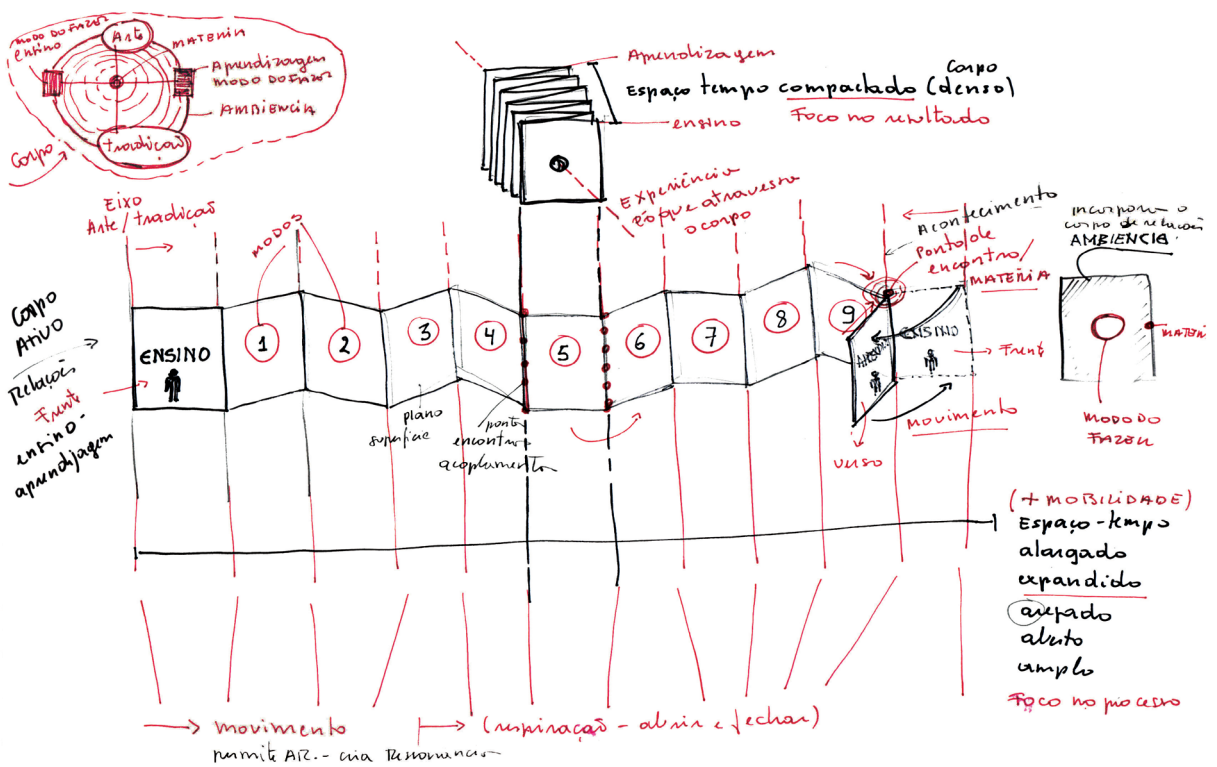 MODO DO FAZER
ensino
Arte
MATERIA
Aprendizagem
MODO DO FAZER
AMBIENCIA
tradição
Corpo
Aprendizagem
Corpo
Espaço tempo compactado (denso)
ensino
Foco no resultado
Experiência
é o que atravessa
o corpo
Eixo
Arte/tradição
MODOS
Acontecimento
Ponto de
encontro/
MATERIA
incorpora o
corpo de relações
AMBIENCIA
MATERI
MODO DO
FAZER
Corpo
Ativo
Relação
Frente
ensino-
aprendizagem
ENSINO
1
2
3
4
5
6
7
8
9
ENSINO
Frente
MOVIMENTO
verso
plano
superfície
ponto
encontro
acoplamento
(+ MOBILIDADE)
Espaço-tempo
alargado
expandido
arejado
aberto
amplo
Foco no processo
movimento
(respiração - abrir e fechar)
permite AR. - cria Ressonancia